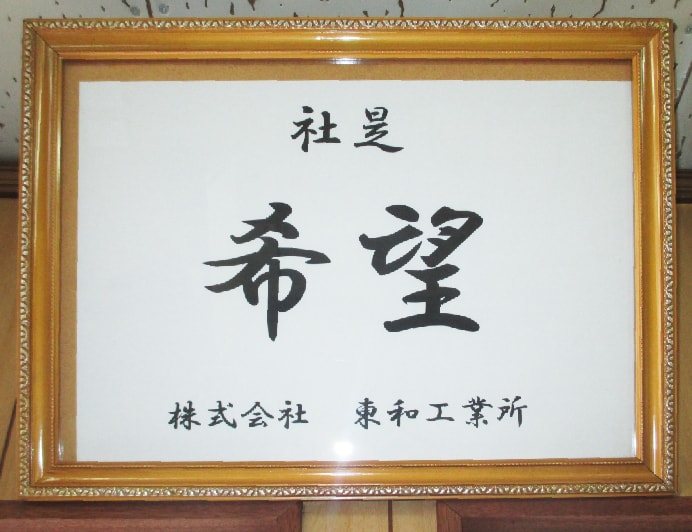 社是
希望
株式会社　東和工業所